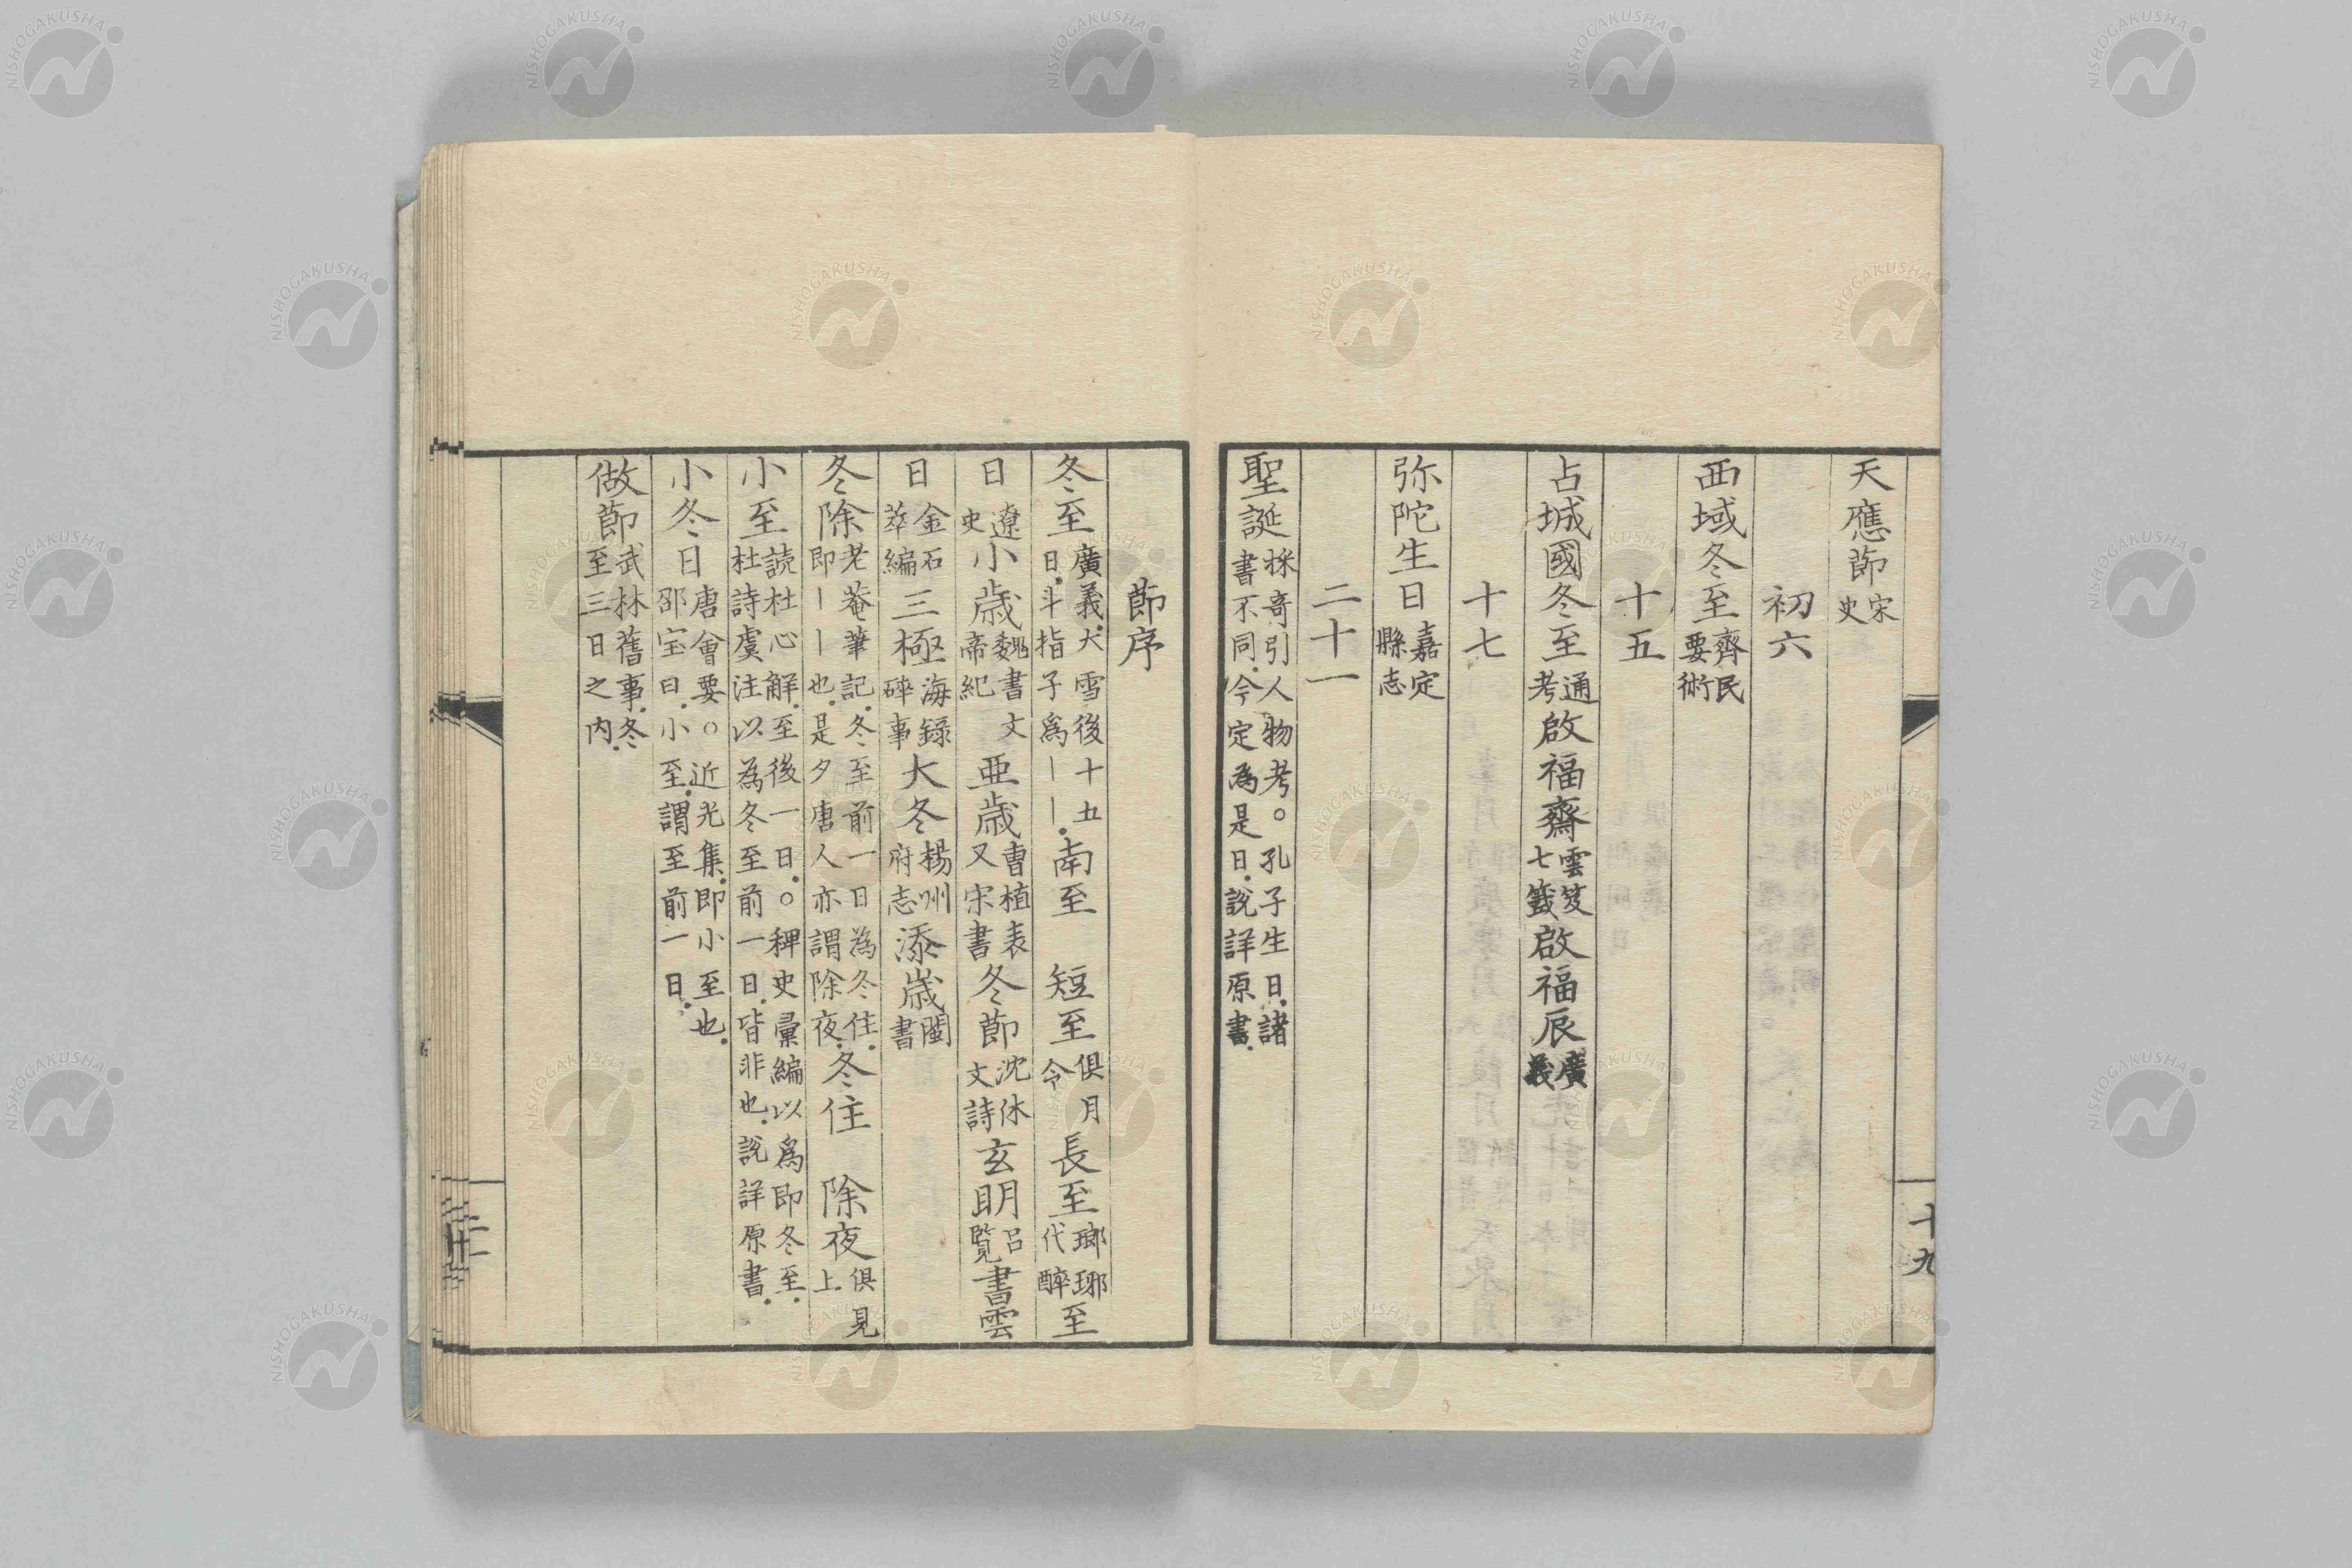 天應節宋史
初六
西域冬至齊民要術
十五
占城國冬至通考啟福齋雲笈七籤啟福辰廣義
十七
弥陀生日嘉定縣志
二十一
聖誕採奇引人物考。孔子生日.諸書不同.今定為是日.說詳原書.
十九
節序
冬至廣義.大雪後十五日.斗指子爲||.南至 短至俱月令長至瑯琊代醉至
日遼史小歲魏書文帝紀亜歲曹植表又宋書冬節沈休文詩玄明呂覧書雲
日金石萃編三極海録碎事大冬楊州府志添歲閩書
冬除老菴筆記.冬至前一日為冬住.即||也.是夕唐人亦謂除夜.冬住 除夜俱見上
小至読杜心解.至後一日.。稗史彙編以爲即冬至.杜詩虞注以為冬至前一日.皆非也.說詳原書.
小冬日唐會要。近光集.即小至也.邵宝曰.小至.謂至前一日.
做節武林舊事.冬至三日之内.
二十
NISHOGAKUSHA